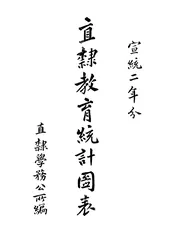 宣統二年分
直隸教育統計圖表
直隸學務公所編